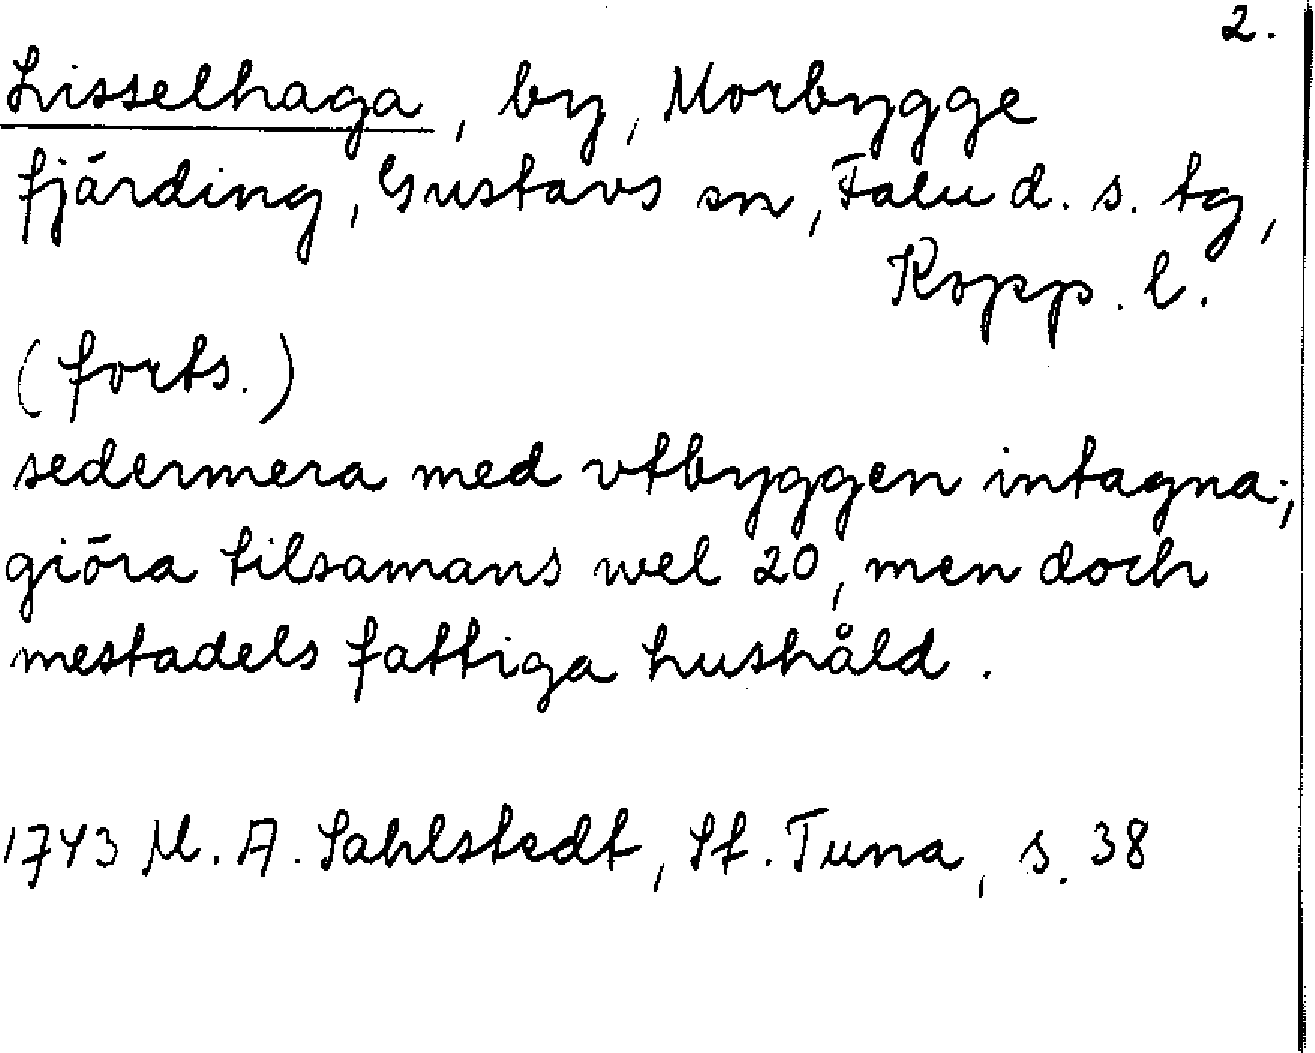 2.
Lisselhaga, by, Morbygge
fjärding, Gustavs sn, Falu d. s. tg,
Kopp. l.
(forts.)
sedermera med vtbyggen intagna;
giöra tilsamans wel 20, men doch
mestadels fattiga hushåld.
1743 M. A. Sahlstedt, St. Tuna, s. 38